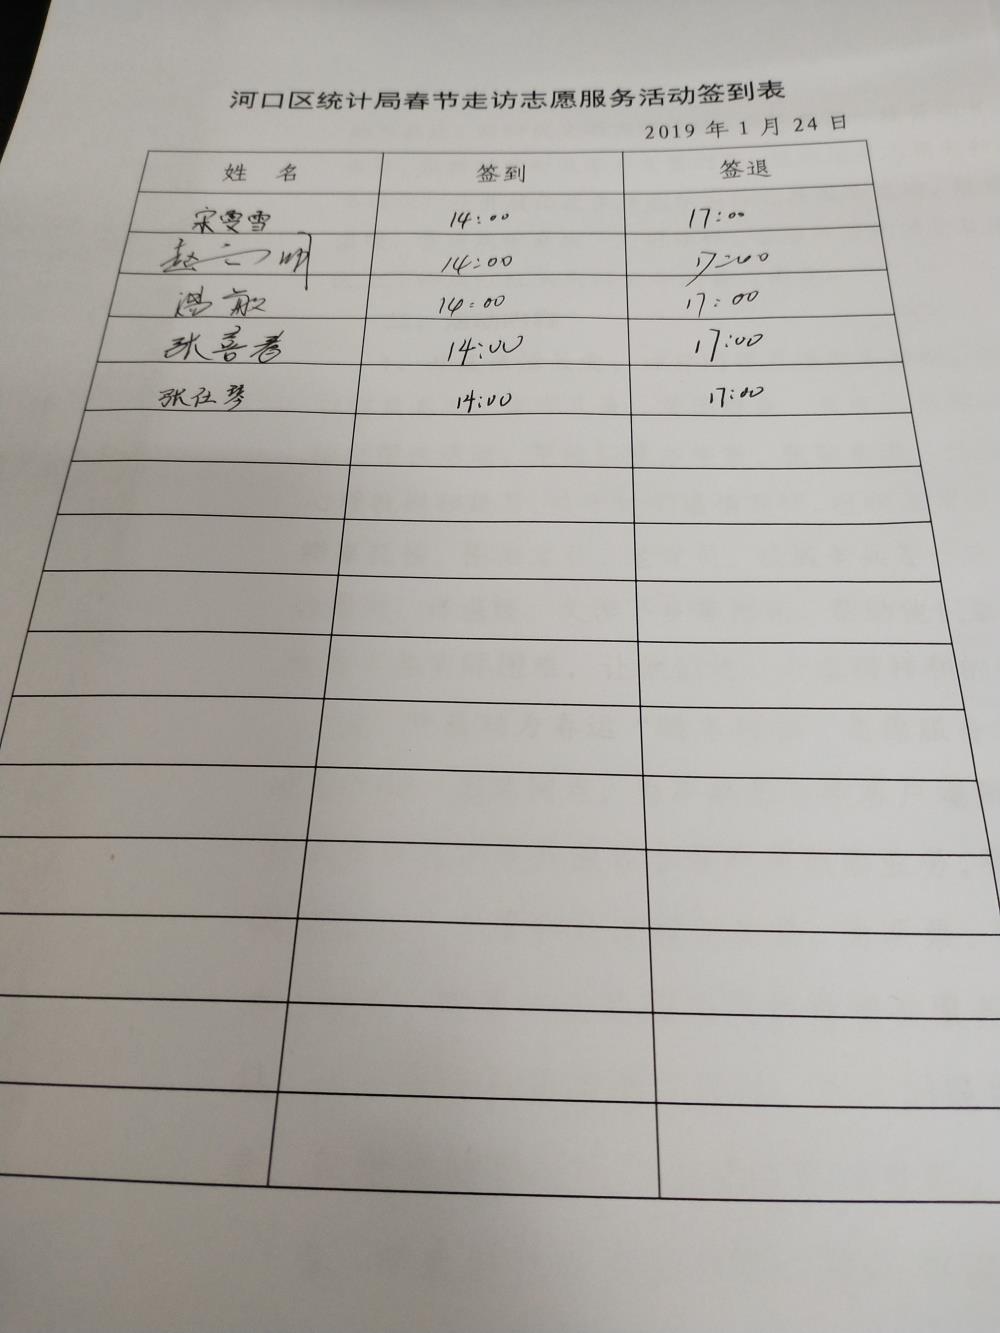 河口区统计局春节走访志愿服务活动签到表
2019 年 1 月 24 日
姓 名 签到 签退
宋雯雪 14:00 17:00
赵 明 14:00 17:00
敏 14:00 17:00
张喜春 14:00 17:00
张仕琴 14:00 17:00